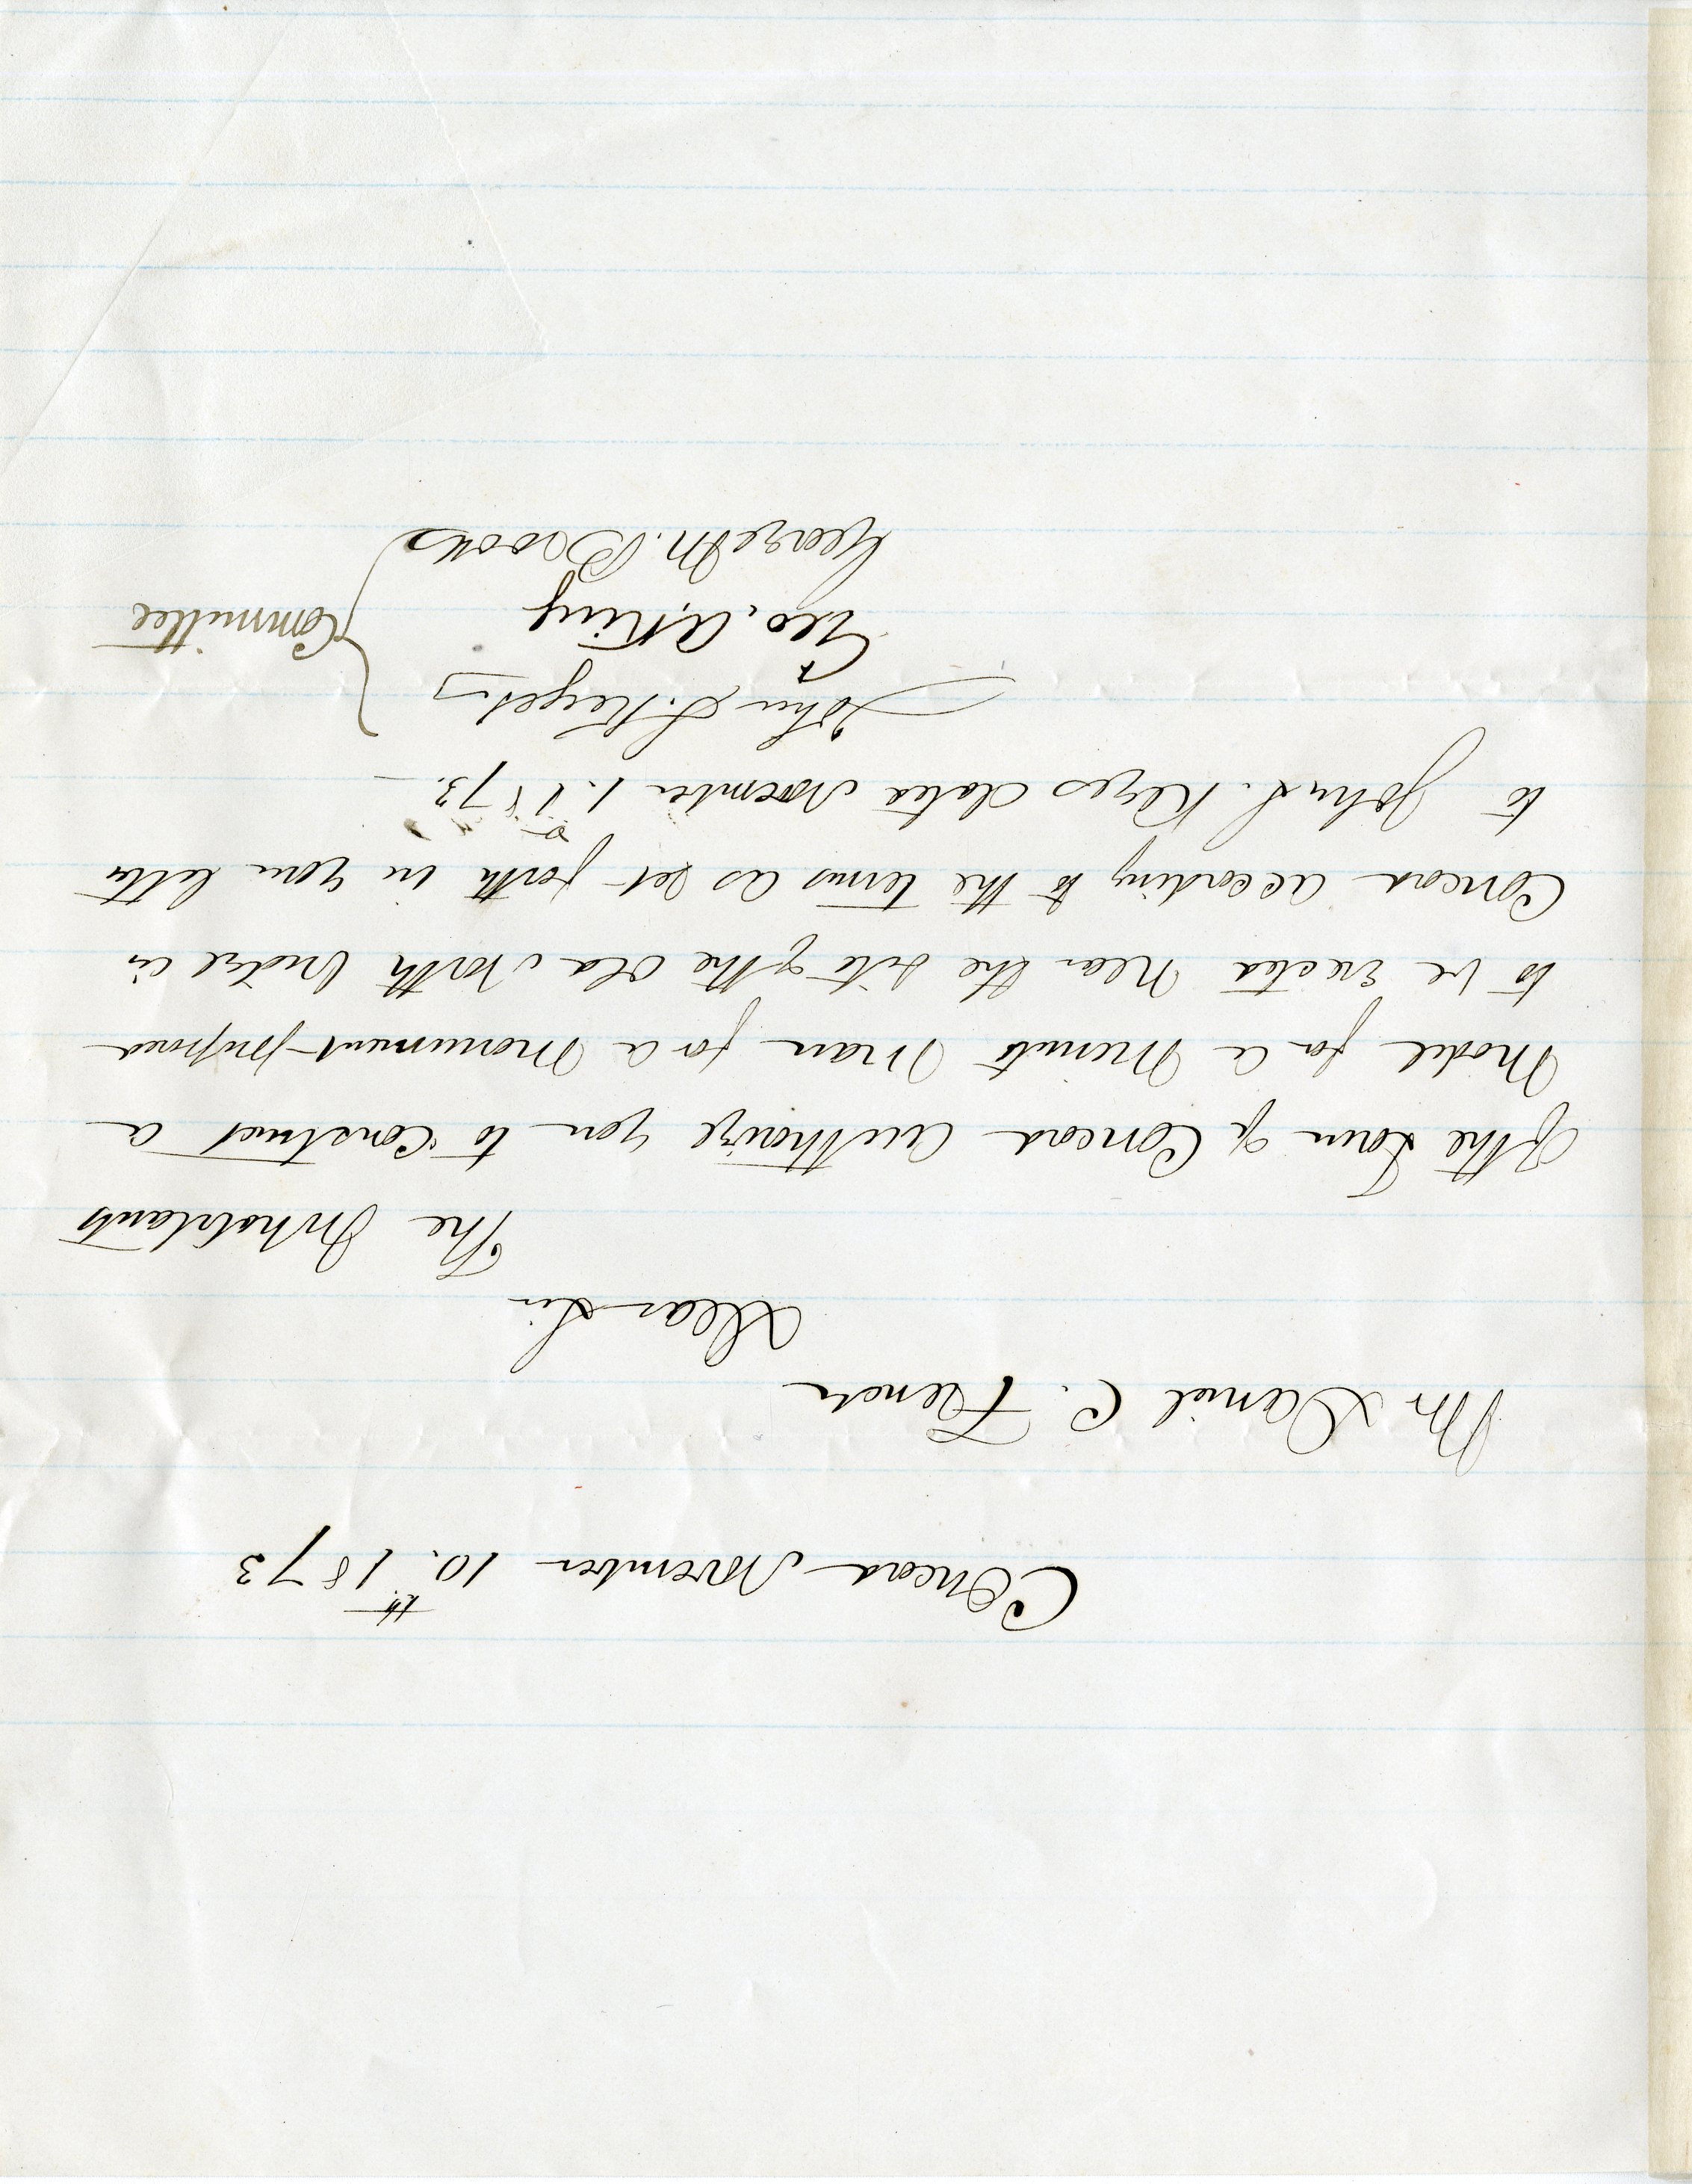 Concord November 10.th 1873
Mr Daniel C. French
Dear Sir
The Inhabitants
of the Town of Concord Authorize you to Construct a
Model for a Minute Man for a Monument proposed
to be Erected Near the site of the Old North Bridge in
Concord according to the terms as set forth in your letter
to John S. Keyes dated November 1. 1873.
John S. Keyes
Geo. A. King
George M. Brooks
Committee